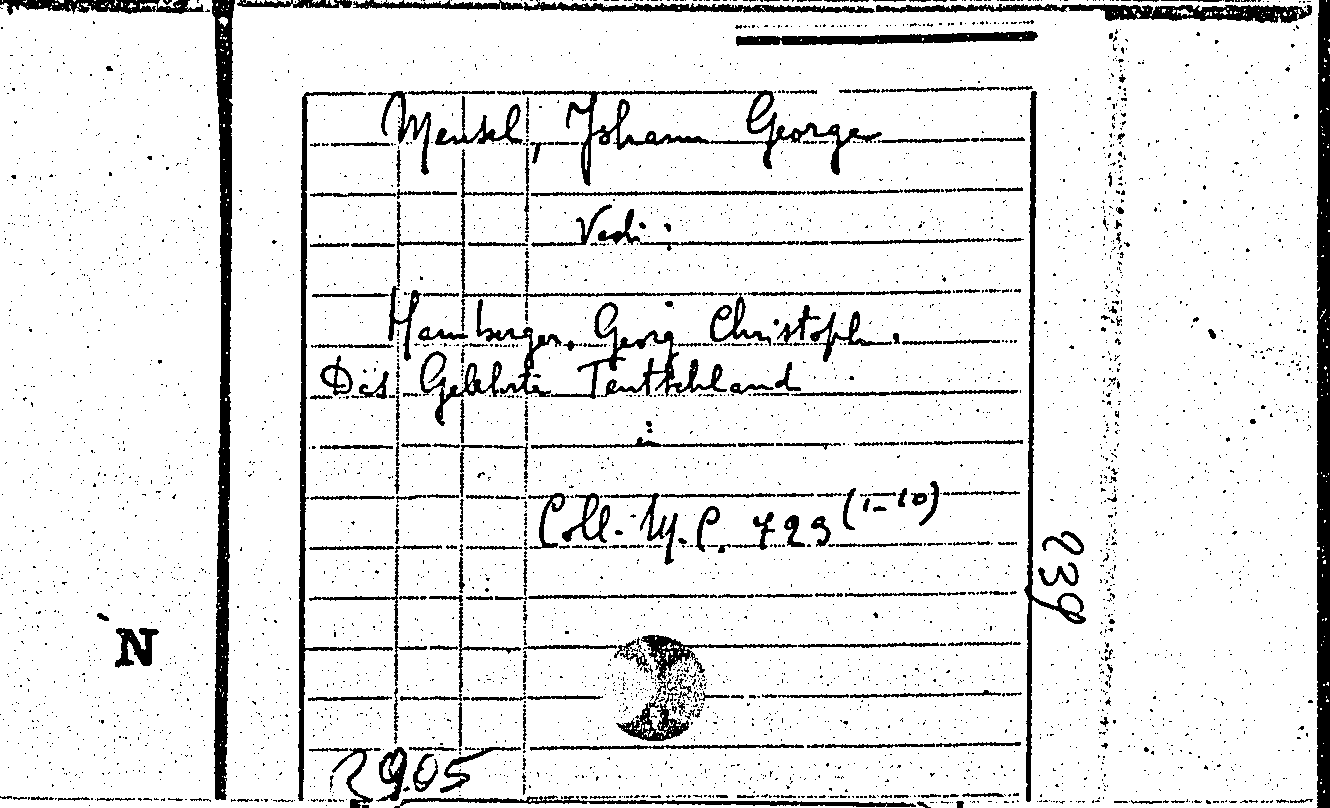 Meusel, Johann George
Vedi:
Hamberger, Georg Christoph.
Das Gelehrte Teutschland
in
Coll. W.P. 723 (1-10)
239
N
2905